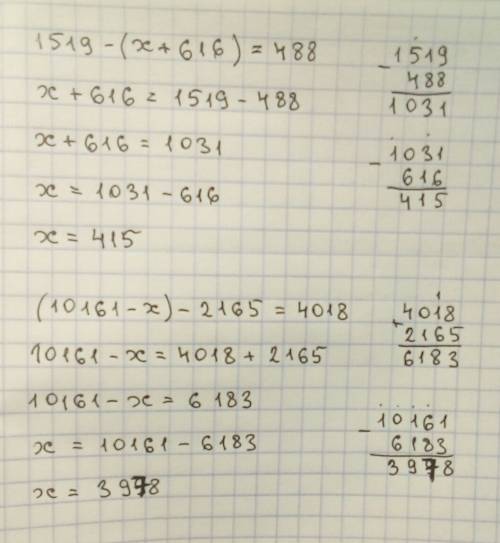 1519 - (x + 616) = 488
x + 616 = 1519 - 488
x + 616 = 1031
x = 1031 - 616
x = 415
- 1519
488
1031
- 1031
616
415
(10161 - x) - 2165 = 4018
10161 - x = 4018 + 2165
10161 - x = 6183
x = 10161 - 6183
x = 3978
1
+ 4018
2165
6183
- 10161
6183
3978